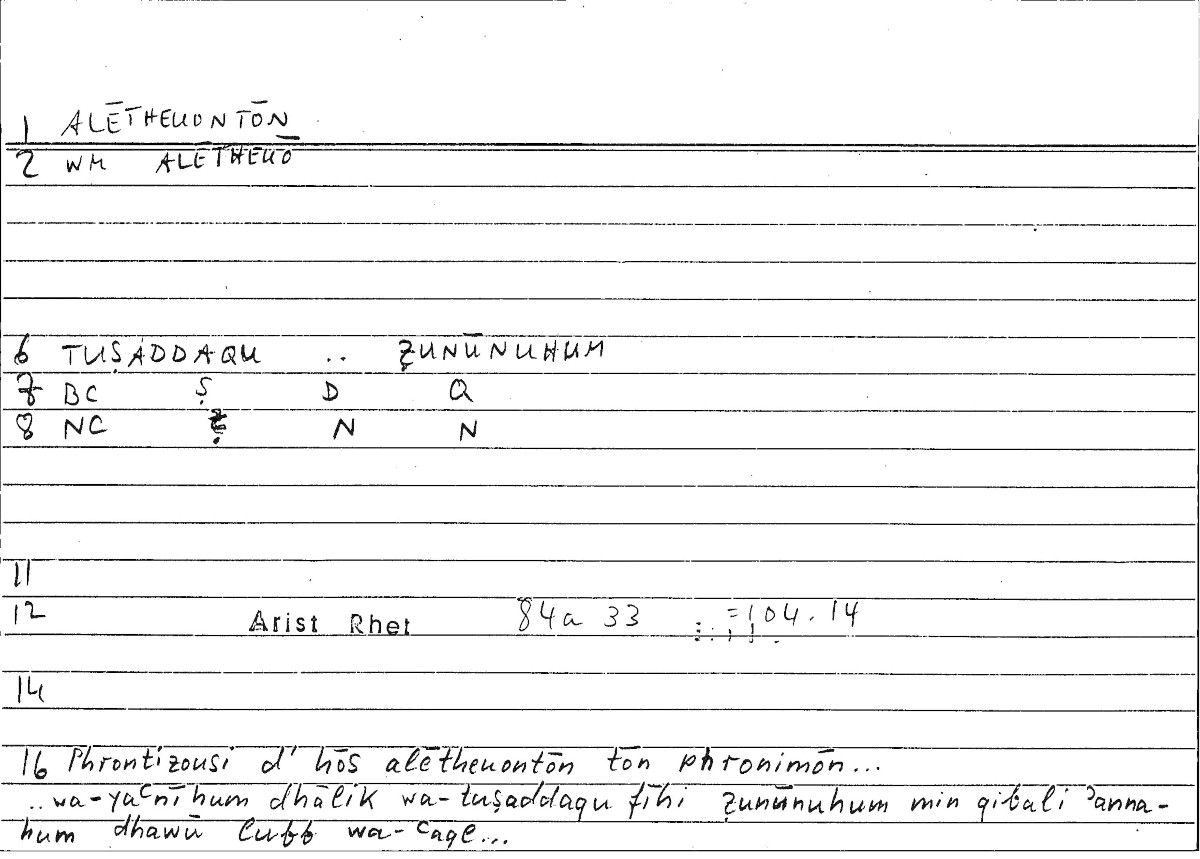 1 ALĒTHEUONTŌN
2 WM ALĒTHEUŌ
6 TUṢADDAQU .. ẒUNŪNUHUM
7 BC Ṣ D Q
8 NC Ẓ N N
11
12 Arist Rhet 84a 33 =104.14
14
16 Phrontizousi d' hōs alētheuontōn tōn phronimōn...
..wa-yaᶜnīhum dhālik wa-tuṣaddaqu fīhi ẓunūnuhum min qibali ʾanna-
hum dhawū lubb wa-ᶜaql...